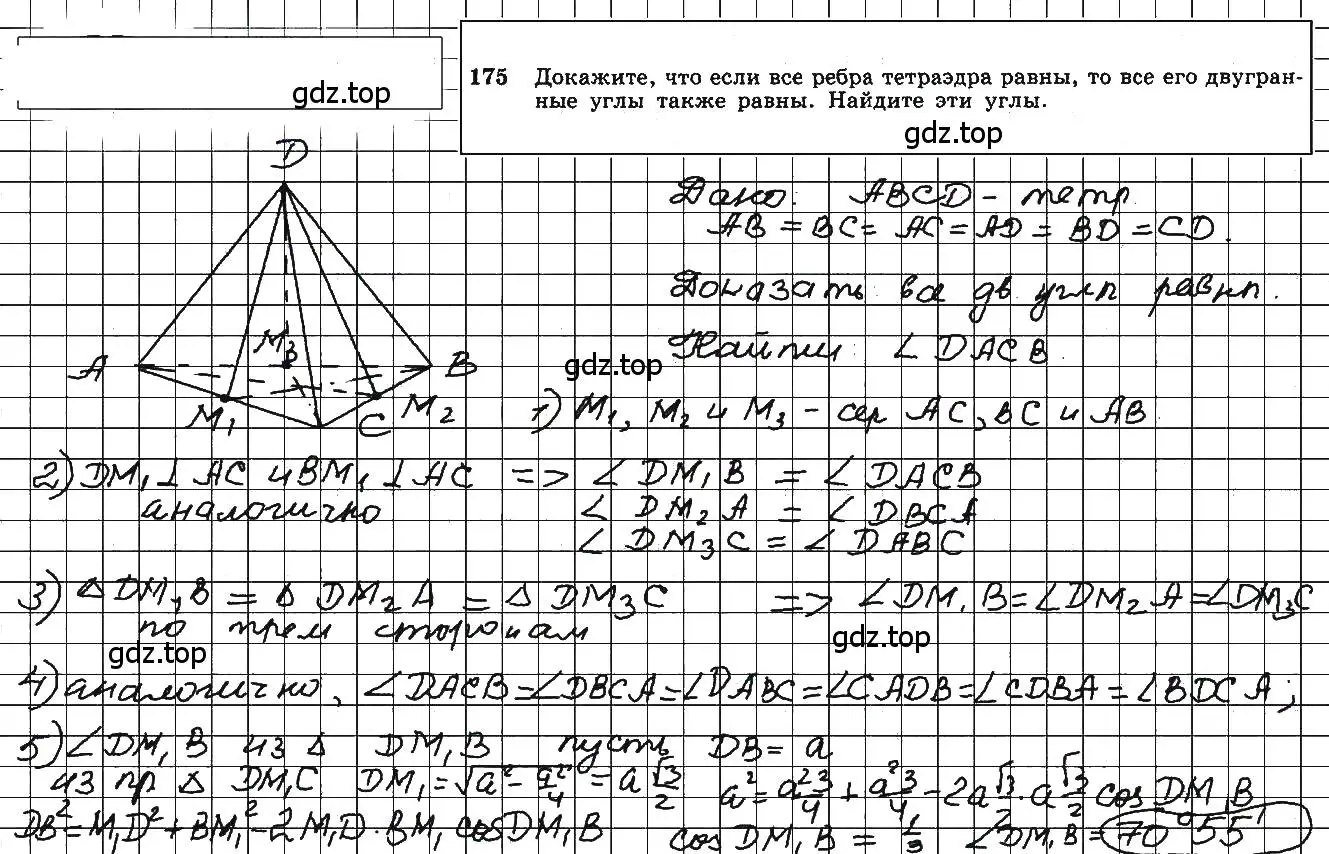 175 Докажите, что если все ребра тетраэдра равны, то все его двугран-
ные углы также равны. Найдите эти углы.
gdz.top
gdz.top
D
A
M₃
B
M₁
C
M₂
Дано: ABCD - тетр.
AB = BC = AC = AD = BD = CD.
Доказать все дв углы равны.
Найти ∠DACB
gdz.top
1) M₁, M₂ и M₃ - сер AC, BC и AB
2) DM₁ ⊥ AC и BM₁ ⊥ AC => ∠DM₁B = ∠DACB
аналогично ∠DM₂A = ∠DBCA
∠DM₃C = ∠DABC
3) △DM₁B = △DM₂A = △DM₃C => ∠DM₁B = ∠DM₂A = ∠DM₃C
по трем сторонам
gdz.top
gdz.top
4) аналогично, ∠DACB = ∠DBCA = ∠DABC = ∠CADB = ∠CDBA = ∠BDCA;
5) ∠DM₁B из △ DM₁B пусть DB = a
из пр △ DM₁C DM₁ = √(a² - a²/4) = a √3/2 a² = a² 3/4 + a² 3/4 - 2a √3/2 · a √3/2 cos DM₁B
DB² = M₁D² + BM₁² - 2M₁D · BM₁ cos DM₁B cos DM₁B = 1/3 ∠DM₁B = 70°55'